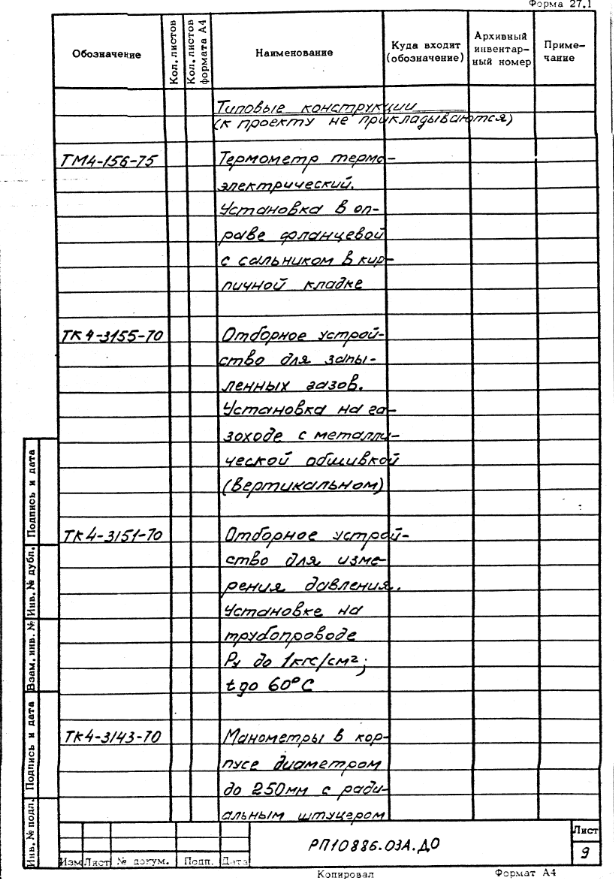 Форма 27.1
Обозначение
Кол. листов
Кол. листов формата А4
Наименование
Куда входит (обозначение)
Архивный инвентарный номер
Примечание
Типовые конструкции
(к проекту не прикладываются)
ТМ4-156-75 Термометр термо-
электрический.
Установка в оп-
раве фланцевой
с сальником в кир-
пичной кладке
ТК4-3155-70 Отборное устрой-
ство для запы-
ленных газов.
Установка на га-
зоходе с металли-
ческой обшивкой
(вертикальном)
ТК4-3151-70 Отборное устрой-
ство для изме-
рения давления.
Установке на
трубопроводе
Ру до 1кгс/см²;
t до 60°С
ТК4-3143-70 Манометры в кор-
пусе диаметром
до 250мм с ради-
альным штуцером
Инв. № подл. Подпись и дата Взам. инв. № Инв. № дубл. Подпись и дата
Изм Лист № докум. Подп. Дата
РП10886.03А.ДО
Лист
9
Копировал Формат А4